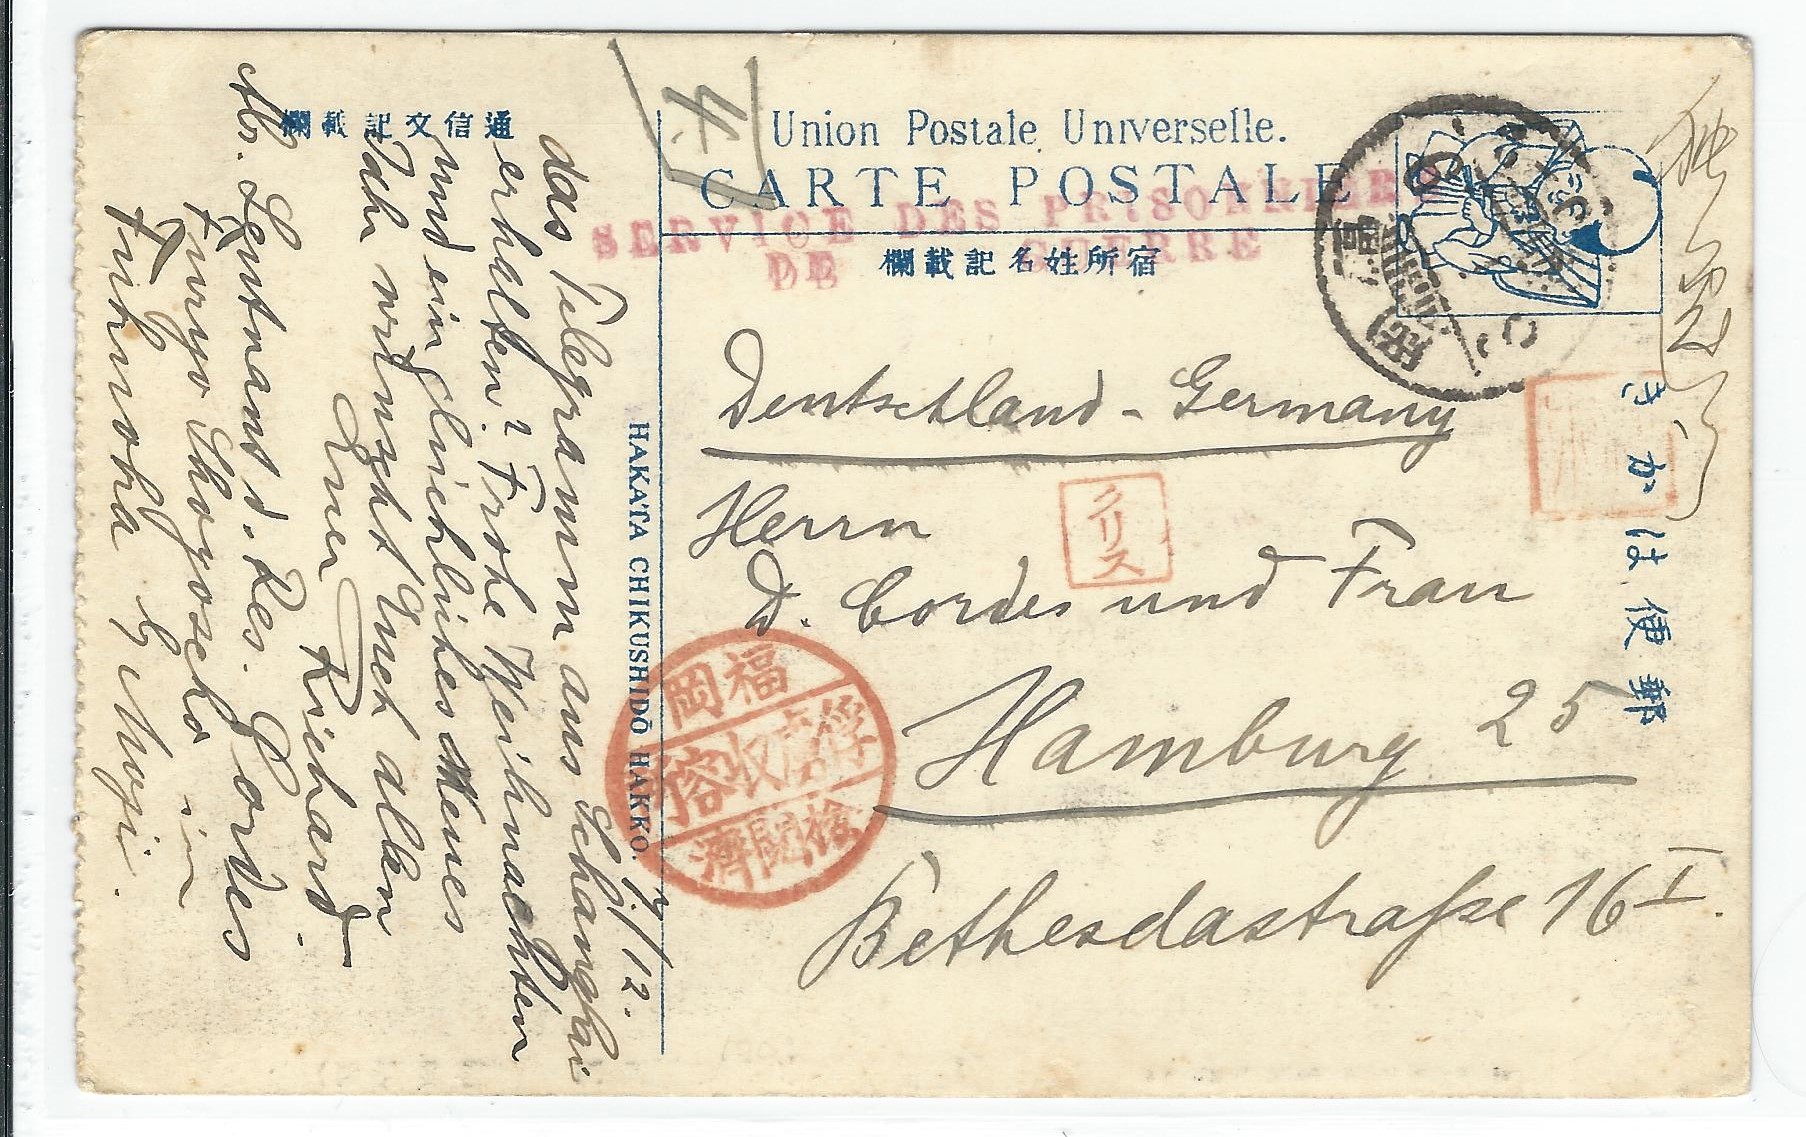 Union Postale Universelle.
CARTE POSTALE
SERVICE DES PRISONNIERS
DE GUERRE
欄載記名姓所宿
欄載記文信通
きかは便郵
HAKATA CHIKUSHIDŌ HAKKO.
クリス
福岡
俘虜收容所
檢閲濟
Deutschland - Germany
Herrn
D. Cordes und Frau
Hamburg 25
Bethesdastraße 16 I.
/12.
das Telegramm aus Schanghai
erhalten? Frohe Weihnachten
und ein glückliches Neues
Jahr wünscht Euch allen
Euer Richard
Abs. Leutnant d. Res. Cordes
Furyo Shuyosho in
Fukuoka